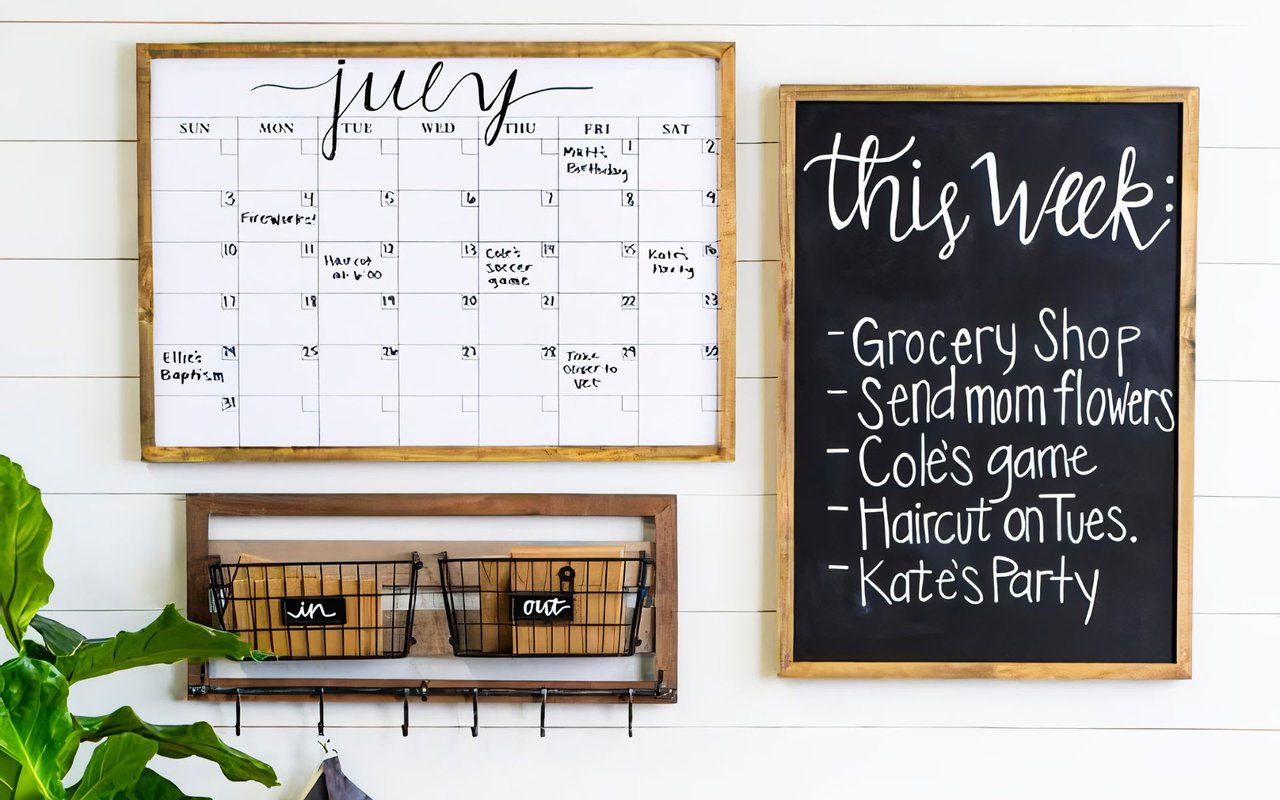 july
SUN MON TUE WED THU FRI SAT
1 2
Matt's
Birthday
3 4 5 6 7 8 9
Fireworks!
10 11 12 13 14 15 16
Haircut
at 6:00
Cole's
soccer
game
Kate's
Party
17 18 19 20 21 22 23
24 25 26 27 28 29 30
Ellie's
Baptism
Take
to
vet
31
this week:
- Grocery Shop
- Send mom flowers
- Cole's game
- Haircut on Tues.
- Kate's Party
in
out